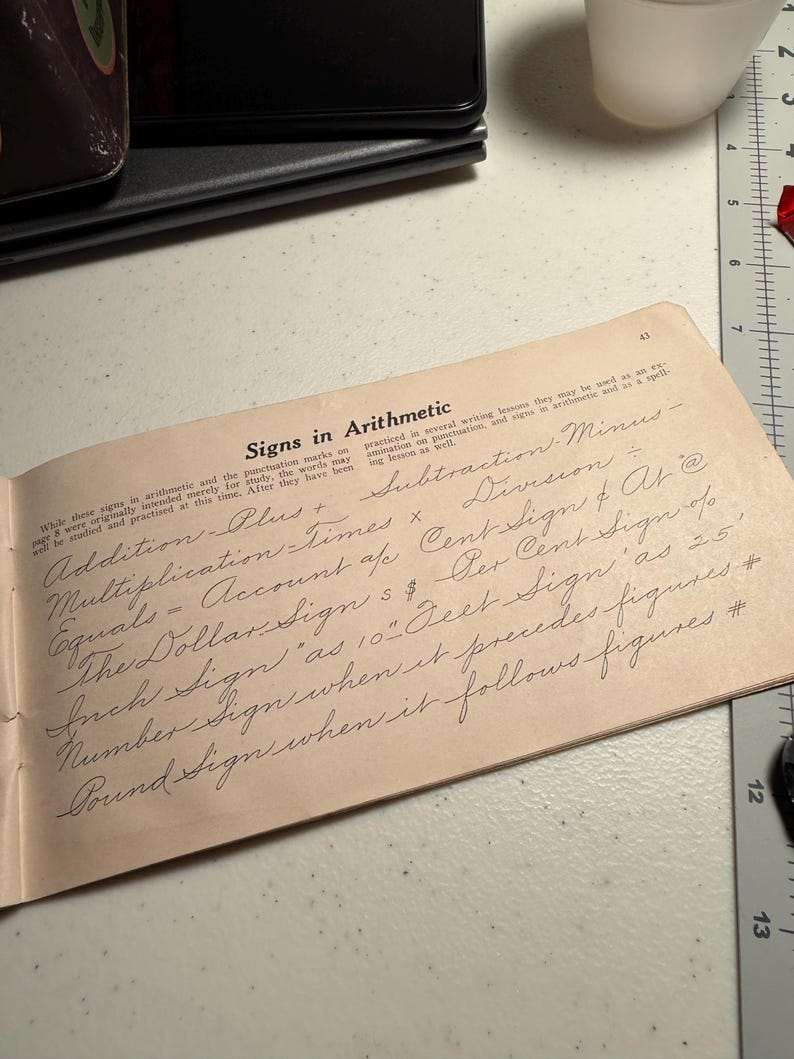 43
Signs in Arithmetic
While these signs in arithmetic and the punctuation marks on
page 8 were originally intended merely for study, the words may
well be studied and practised at this time. After they have been
practiced in several writing lessons they may be used as an ex-
amination on punctuation, and signs in arithmetic and as a spell-
ing lesson as well.
Addition-Plus + Subtraction-Minus -
Multiplication=Times × Division ÷
Equals = Account a/c Cent Sign ¢ At @
The Dollar Sign s $ Per Cent Sign %
Inch Sign " as 10" Feet Sign ' as 25'
Number Sign when it precedes figures #
Pound Sign when it follows figures #
1
2
3
4
5
6
7
2
3
4
12
13